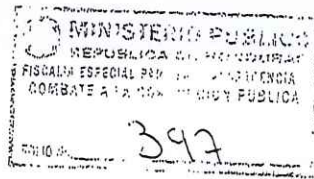 MINISTERIO PUBLICO
REPUBLICA DE HONDURAS
FISCALIA ESPECIAL
COMBATE A LA PUBLICA
FOLIO 397